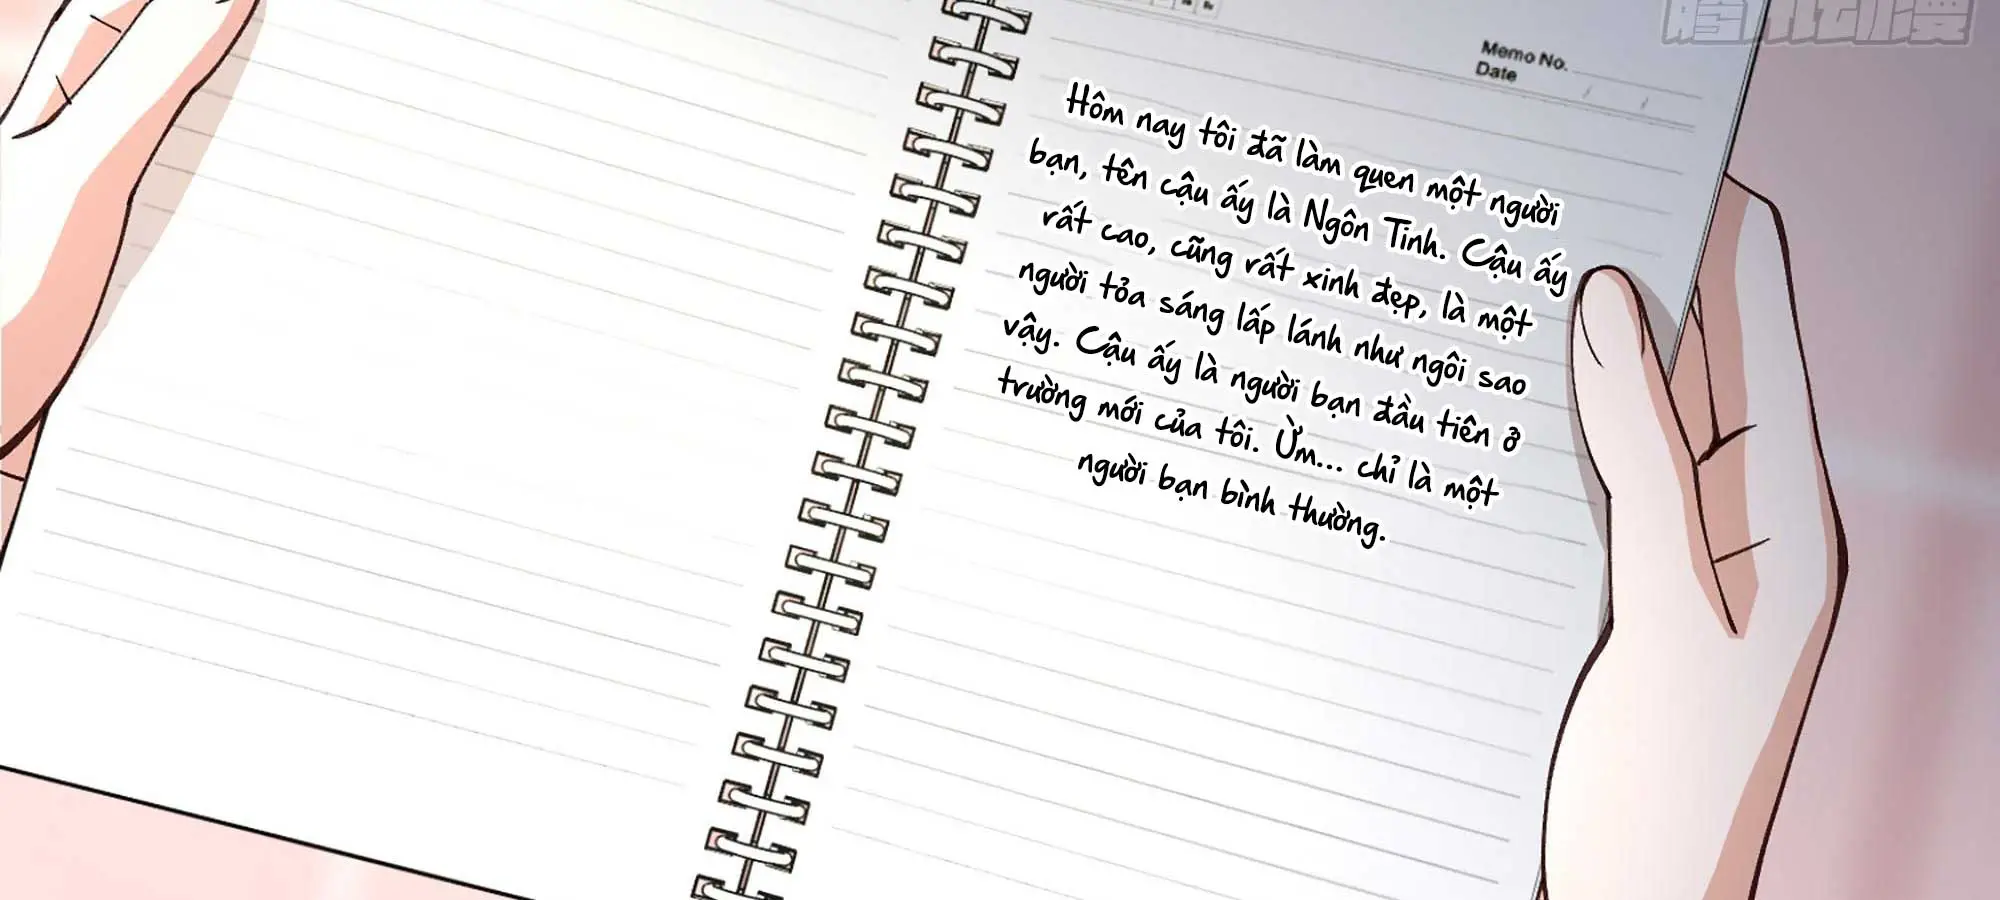 腾讯动漫
Memo No.
Date
Hôm nay tôi đã làm quen một người
bạn, tên cậu ấy là Ngôn Tinh. Cậu ấy
rất cao, cũng rất xinh đẹp, là một
người tỏa sáng lấp lánh như ngôi sao
vậy. Cậu ấy là người bạn đầu tiên ở
trường mới của tôi. Ừm... chỉ là một
người bạn bình thường.